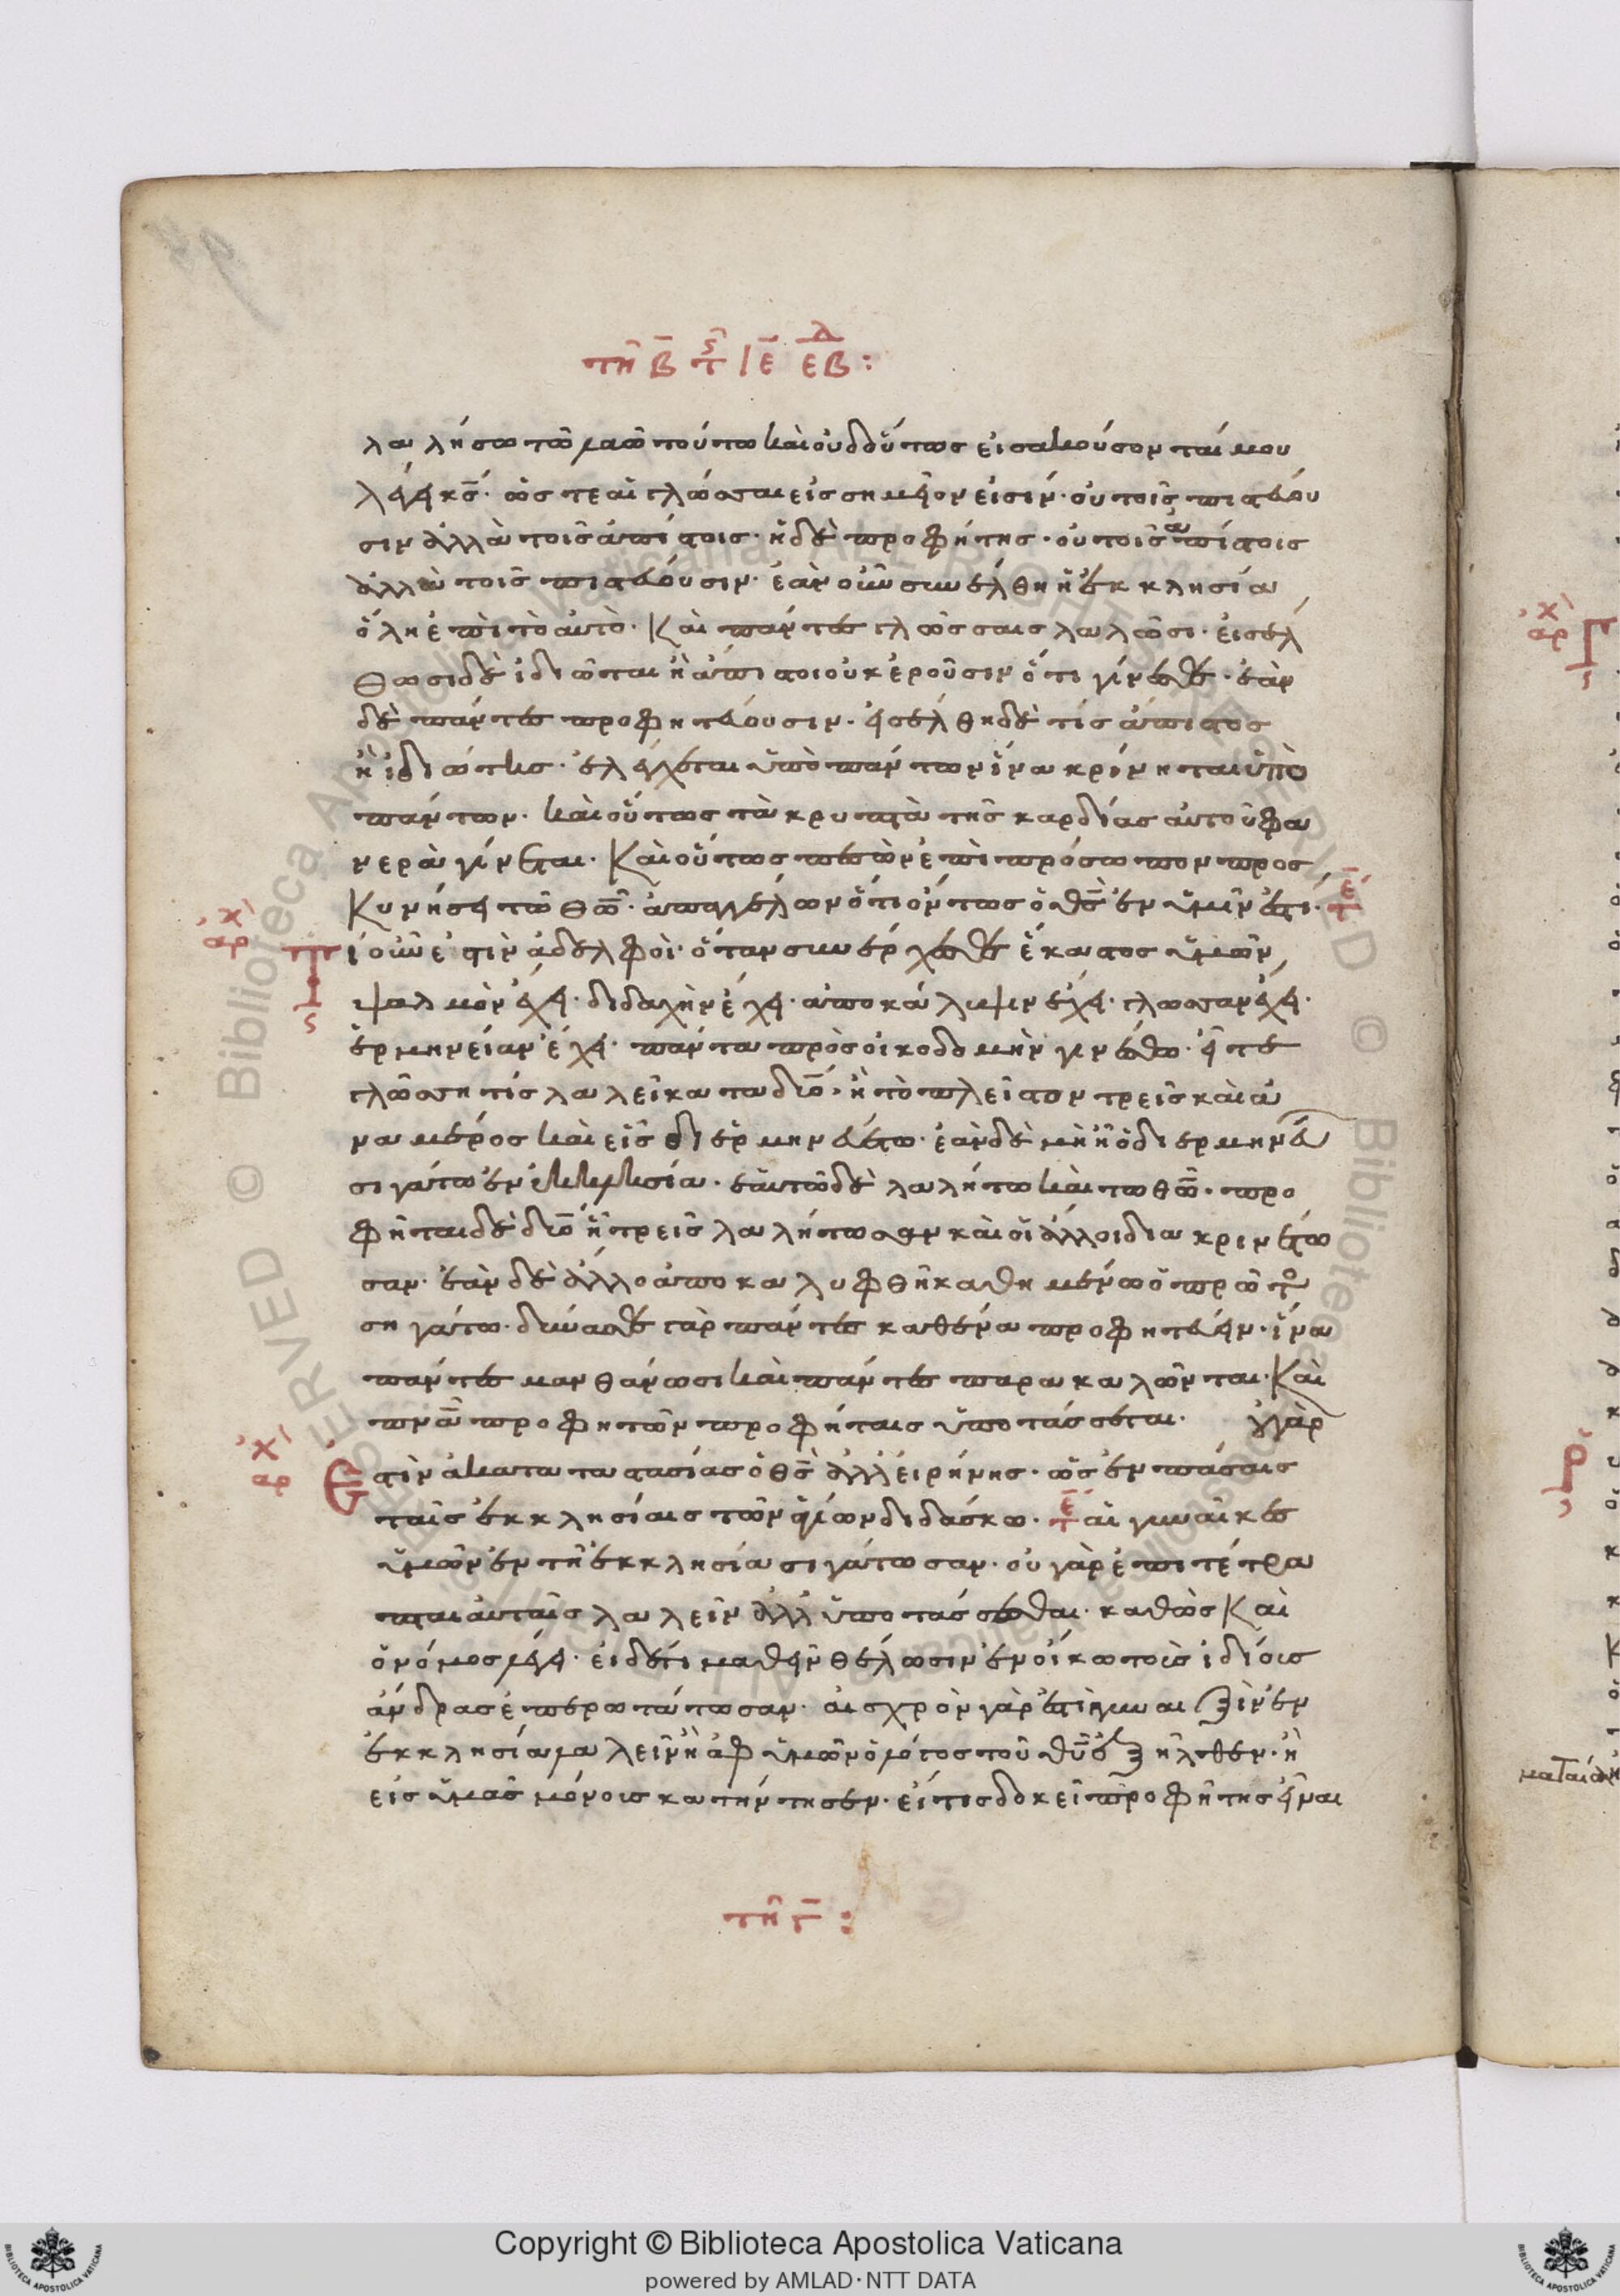 τῆ β̅ τ ς ι̅ε̅ εβδ :
λαλήσω τῶ λαῶ τούτω καὶ οὐδ οὕτως εἰσακούσονταί μου
λέγει κς̅· ὥς τε αἱ γλῶσσαι εἰς σημεῖον εἰσίν· οὐ τοῖς πιστεύου
σιν ἀλλὰ τοῖς ἀπίστοις· ἡ δὲ προφήτης· οὐ τοῖς ἀπίστοις
ἀλλὰ τοῖς πιστεύουσιν· ἐὰν οὖν συνέλθη ἡ ἐκκλησία
ὅλη ἐπὶ τὸ αὐτὸ· Καὶ πάντες γλώσσαις λαλῶσι· εἰσέλ
θωσι δὲ ἰδιῶται ἢ ἄπιστοι οὐκ ἐροῦσιν ὅτι γίνεσθε· ἐὰν
δὲ πάντες προφητεύουσιν· εἰσέλθη δὲ τίς ἄπιστος
ἢ ἰδιώτης· ἐλέγχεται ὑπὸ πάντων ἵνα κρίνηται ὑπὸ
πάντων· καὶ οὕτως τὰ κρυπτὰ τῆς καρδίας αὐτοῦ φα
νερὰ γίνεται· Καὶ οὕτως πεσὼν ἐπὶ πρόσωπον προς
Κυνήσει τῶ θῶ̅· ἀπαγγέλων ὅτι ὄντως ὁ θς̅ ἐν ὑμῖν ἐστι· τε̅
ἀρχ Τί οὖν ἐστὶν ἀδελφοὶ· ὅταν συνέρχεσθε ἕκαστος ὑμῶν
ψαλμὸν ἔχει· διδαχὴν ἔχει· ἀποκάλυψιν ἔχει· γλῶσσαν ἔχει·
ἑρμηνείαν ἔχει· πάντα πρὸς οἰκοδομὴν γινέσθω· εἴτε
γλώσση τίς λαλεῖ κατα δύο· ἢ τὸ πλεῖστον τρεῖς καὶ ἀ
να μέρος καὶ εἷς διερμηνευέτω· ἐὰν δὲ μὴ ἦ ὁ διερμηνευ
σιγάτω ἐν ἐκκλησία· ἑαυτῶ δὲ λαλήτω καὶ τω θῶ̅· προ
φῆται δὲ δύο ἢ τρεῖς λαλήτωσαν καὶ οἱ ἄλλοι διακρινέτω
σαν· ἐὰν δὲ ἄλλο ἀποκαλυφθῆ καθημένω ὁ πρῶτο
σηγάτω· δύνασθε γὰρ πάντες καθένα προφητεύειν· ἵνα
πάντες μανθάνωσι καὶ πάντες παρακαλῶνται· Καὶ
πνα̅ προφητῶν προφήταις ὑποτάσσεται· οὐ γὰρ
ἀρχ Ἐστὶν ἀκαταστασίας ὁ θς̅ ἀλλ εἰρήνης· ὡς ἐν πάσαις
ταῖς ἐκκλησίαις τῶν ἁγίων διδάσκω· τε̅ αἱ γυναῖκες
ὑμῶν ἐν τῆ ἐκκλησία σιγάτωσαν· οὐ γὰρ ἐπιτέτρα
πται αὐταῖς λαλεῖν ἀλλ ὑποτάσσεσθαι· καθὼς Καὶ
ὁ νόμος λέγει· εἰ δέ τι μαθεῖν θέλωσιν ἐν οἴκω τοὶς ἰδίοις
ἄνδρας ἐπερωτάτωσαν· αἰσχρὸν γὰρ ἐστὶ γυναιξὶν ἐν
ἐκκλησία λαλεῖν ἢ ἀφ ὑμῶν ὁ λόγος τοῦ θυ̅ ἐξῆλθεν· ἢ
εἰς ὑμᾶς μόνοις κατήντησεν· εἴ τις δοκεῖ προφήτης εἶναι
τῆ γ̅ :
Copyright © Biblioteca Apostolica Vaticana
powered by AMLAD·NTT DATA